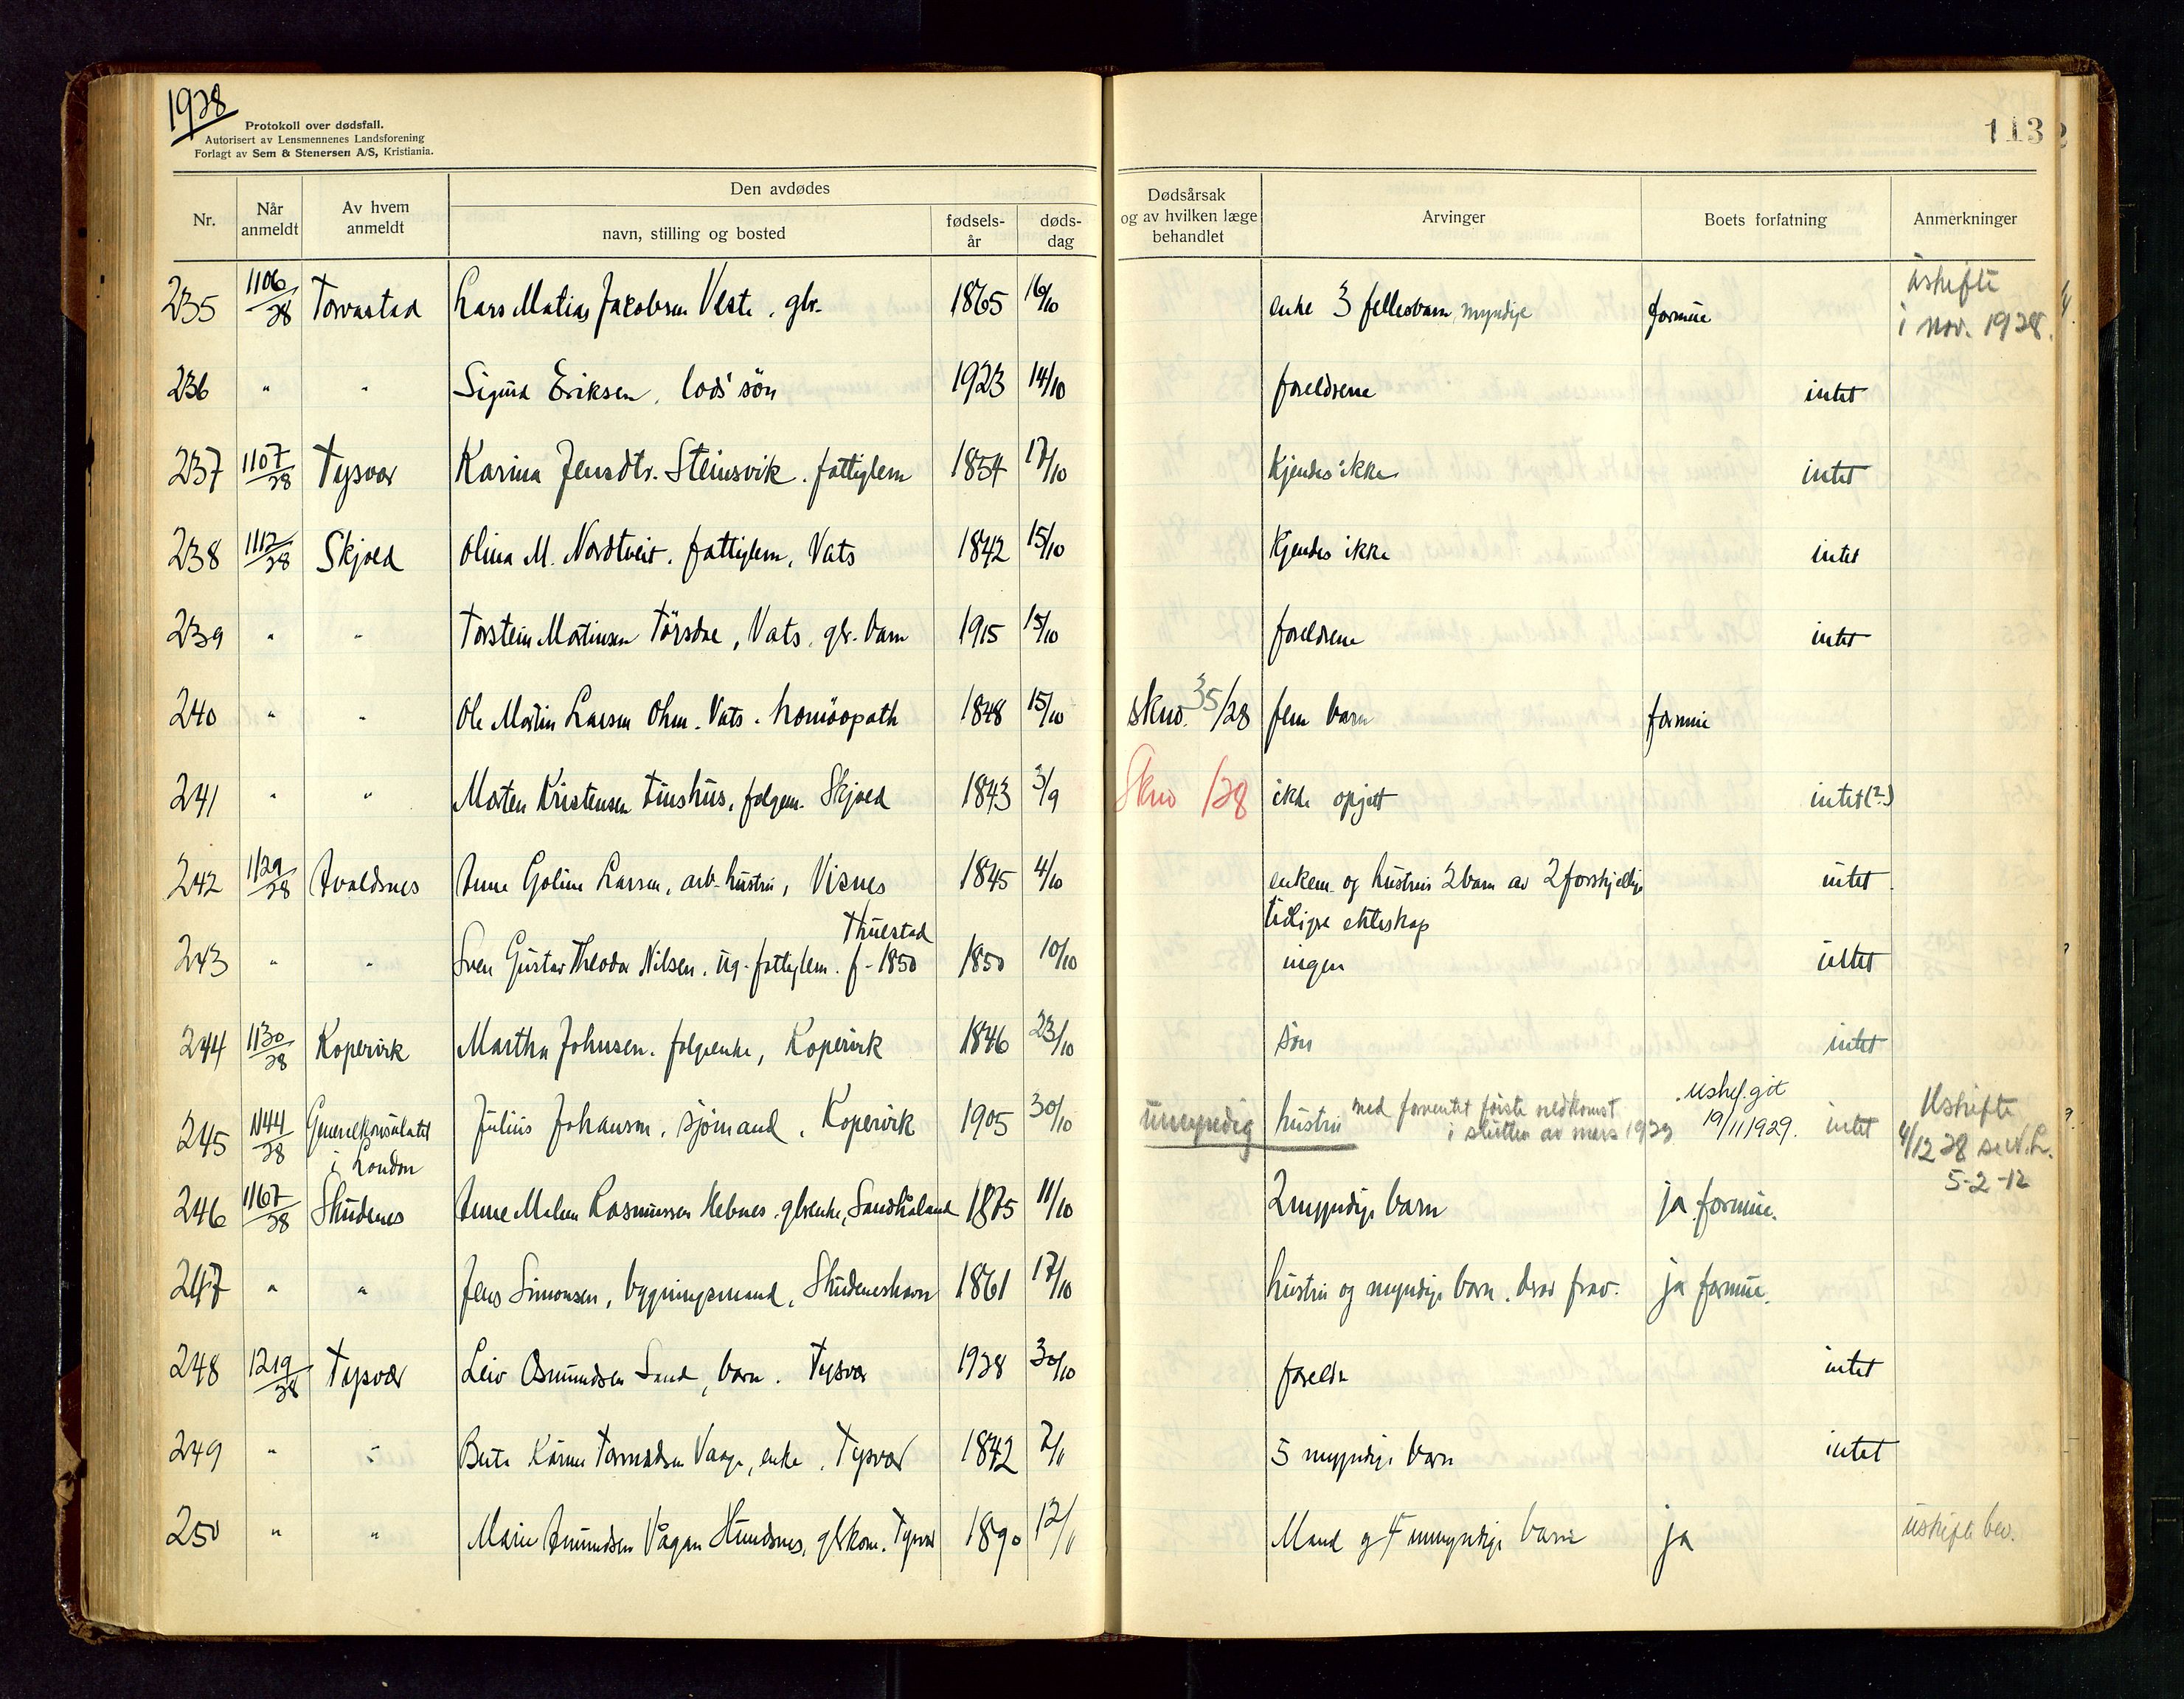 1928
Protokoll over dødsfall.
Autorisert av Lensmennenes Landsforening
Forlagt av Sem & Stenersen A/S, Kristiania.
113
Nr.
Når anmeldt
Av hvem anmeldt
Den avdødes
navn, stilling og bosted
fødsels-år
døds-dag
Dødsårsak og av hvilken læge behandlet
Arvinger
Boets forfatning
Anmerkninger
235 1106/28 Torvastad Lars Matias Jakobsen Veste, gbr. 1865 16/10 enke 3 fellesbarn myndige formue uskifte i nov. 1928.
236 " " Sigurd Eriksen, lods' søn 1923 14/10 foreldrene intet
237 1107/28 Tysvær Karina Jensdtr. Steinsvik. fattiglem 1854 17/10 Kjendes ikke intet
238 1112/28 Skjold Olina M. Nordtveit, fattiglem, Vats 1842 15/10 Kjendes ikke intet
239 " " Torstein Martinsen Tørsdal, Vats, gbr. barn 1915 15/10 foreldrene intet
240 " " Ole Martin Larsen Ohm. Vats. homöopath 1848 15/10 skno. 35/28 fem barn formue
241 " " Morten Kristensen Tinshus, folgem. Skjold 1843 3/9 Skno /28 ikke opgitt intet (?)
242 1129/28 Avaldsnes Anne Goline Larsen, arb. hustru, Visnes 1845 4/10 enkem. og hustrus 2 barn av 2 forskjellige tidligere ekteskap intet
243 " " Sven Gustav Theodor Nilsen, ug. fattiglem. f. 1850 Thuestad 1850 10/10 ingen intet
244 1130/28 Kopervik Martha Johnsen. folgeenke, Kopervik 1846 23/10 søn intet
245 1144/28 Generalkonsulatet i London Julius Johansen, sjömand, Kopervik 1905 30/10 umyndig hustru med forventet første nedkomst i slutten av mars 1929 uskf. git 19/11 1929. intet Uskifte 4/12 28 se N.L. 5-2-12
246 1167/28 Skudenes Anne Malene Rasmussen Hebnes. gbrenke, Sandhåland 1875 11/10 2 myndige barn ja formue.
247 " " Jens Simonsen, bygningsmand, Skudeneshavn 1861 17/10 hustru og myndige barn. derav frav. ja formue.
248 1219/28 Tysvær Leiv Osmundsen Sand, barn. Tysvær 1928 30/10 foreldre intet
249 " " Berte Karine Tormodsen Vaage, enke. Tysvær 1842 2/11 5 myndige barn intet
250 " " Marie Amundsen Vågan Hundsnes, gbrkone. Tysvær 1890 12/11 Mand og 4 umyndige barn ja uskifte bev.